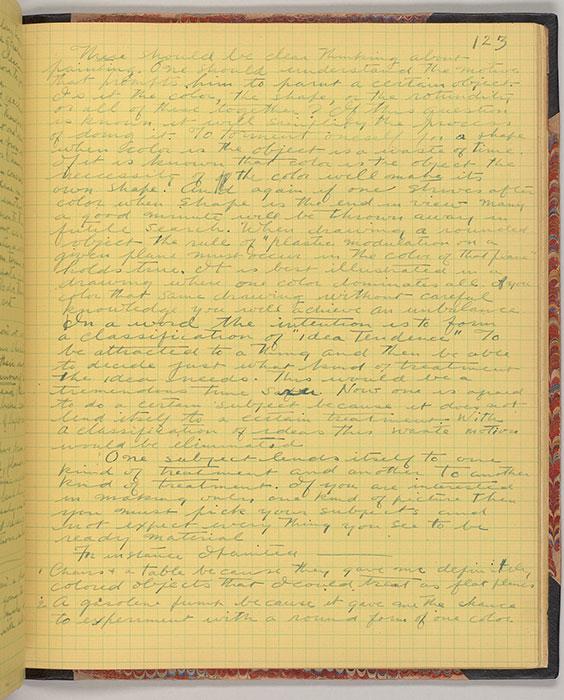 123
There should be clear thinking about
painting. One should understand the motive
that prompts him to paint a certain object.
Is it the color, the shape, or the rotundity
or all of these together. If this question
is known it will simplify the process
of doing it. To torment oneself for a shape
when color is the object is a waste of time.
If it is known that color is the object the
necessity of the color will make its
own shape. And again if one strives after
color when shape is the end in view many
a good minute will be thrown away in
futile search. When drawing a rounded
object the rule of "plastic modulation on a
given plane must occur in the color of that plane"
holds true. It is best illustrated in a
drawing where one color dominates all. If you
color that same drawing without careful
knowledge you will achieve an unbalance.
In a word the intention is to form
a classification of "idea tendence" To
be attracted to a thing and then be able
to decide just what kind of treatment
the idea needs. This would be a
tremendous time saver. Now one is afraid
to do a certain subject because it does not
lend itself to a certain treatment. With
a classification of ideas this waste motion
would be eliminated
One subject lends itself to one
kind of treatment and another to another
kind of treatment. If you are interested
in making only one kind of picture then
you must pick your subjects and
not expect every thing you see to be
ready material
For instance I painted
1. Chairs & a table because they gave me definitely
colored objects that I could treat as flat planes
2. A gasoline pump because it gave me the chance
to experiment with a round form of one color